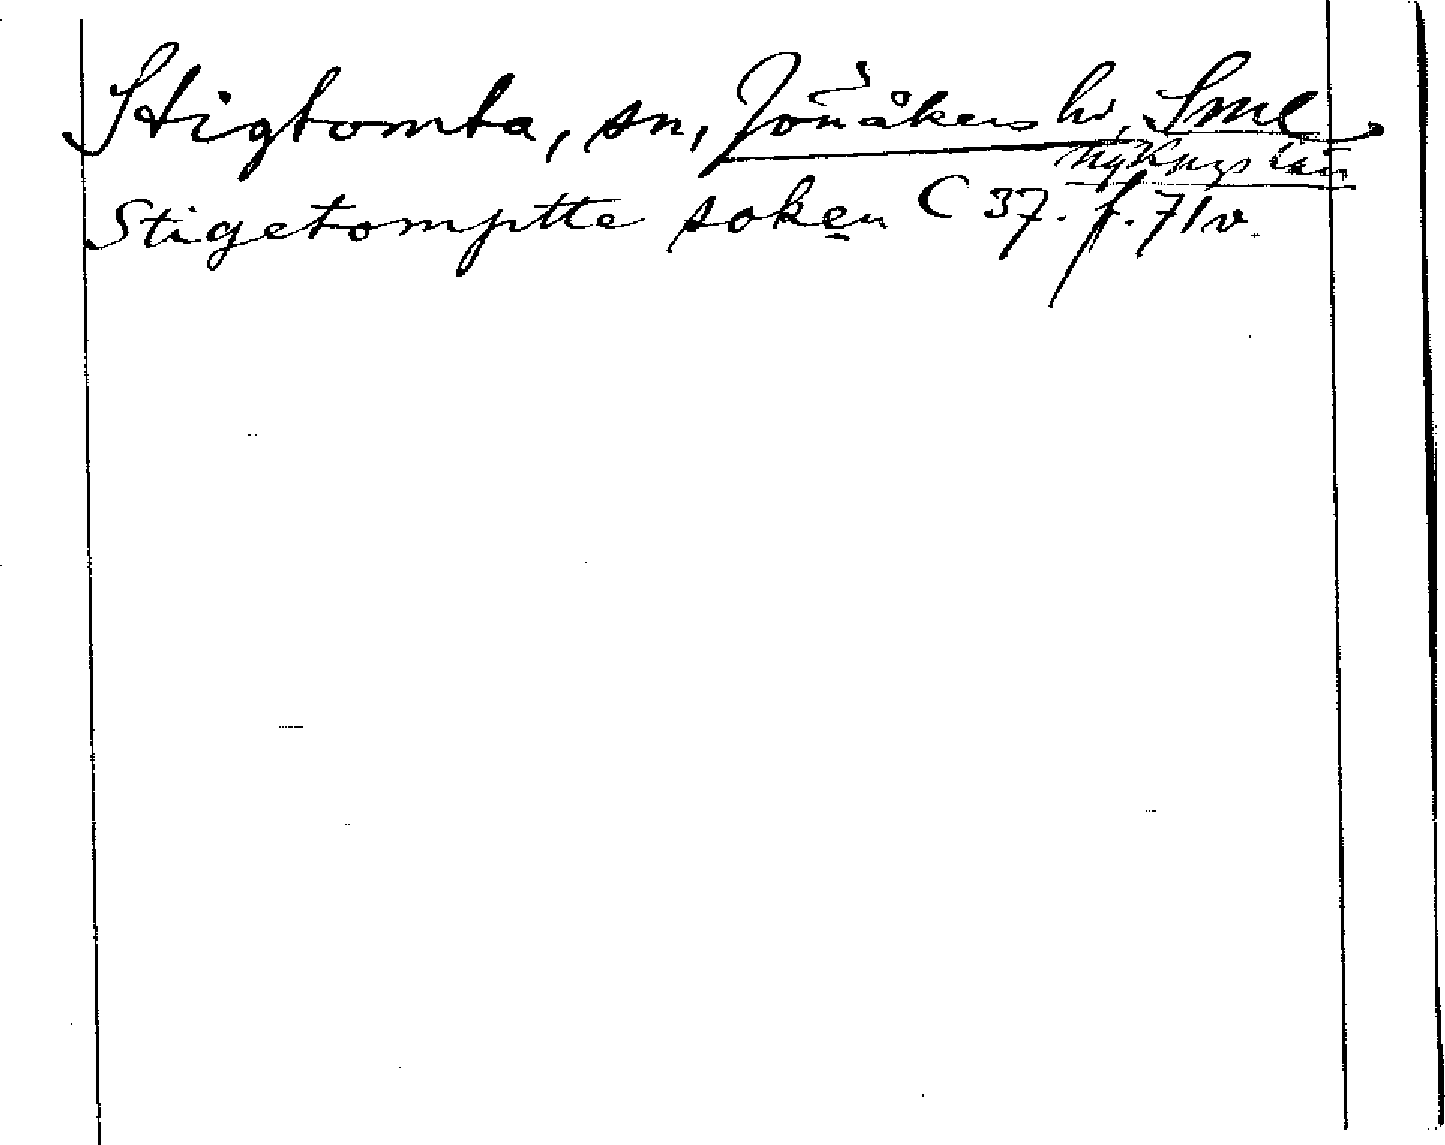 Stigtomta, sn, Jönåkers hd, Sml
Nykpgs län
Stigetomptte soken C 37. f. 71 v.